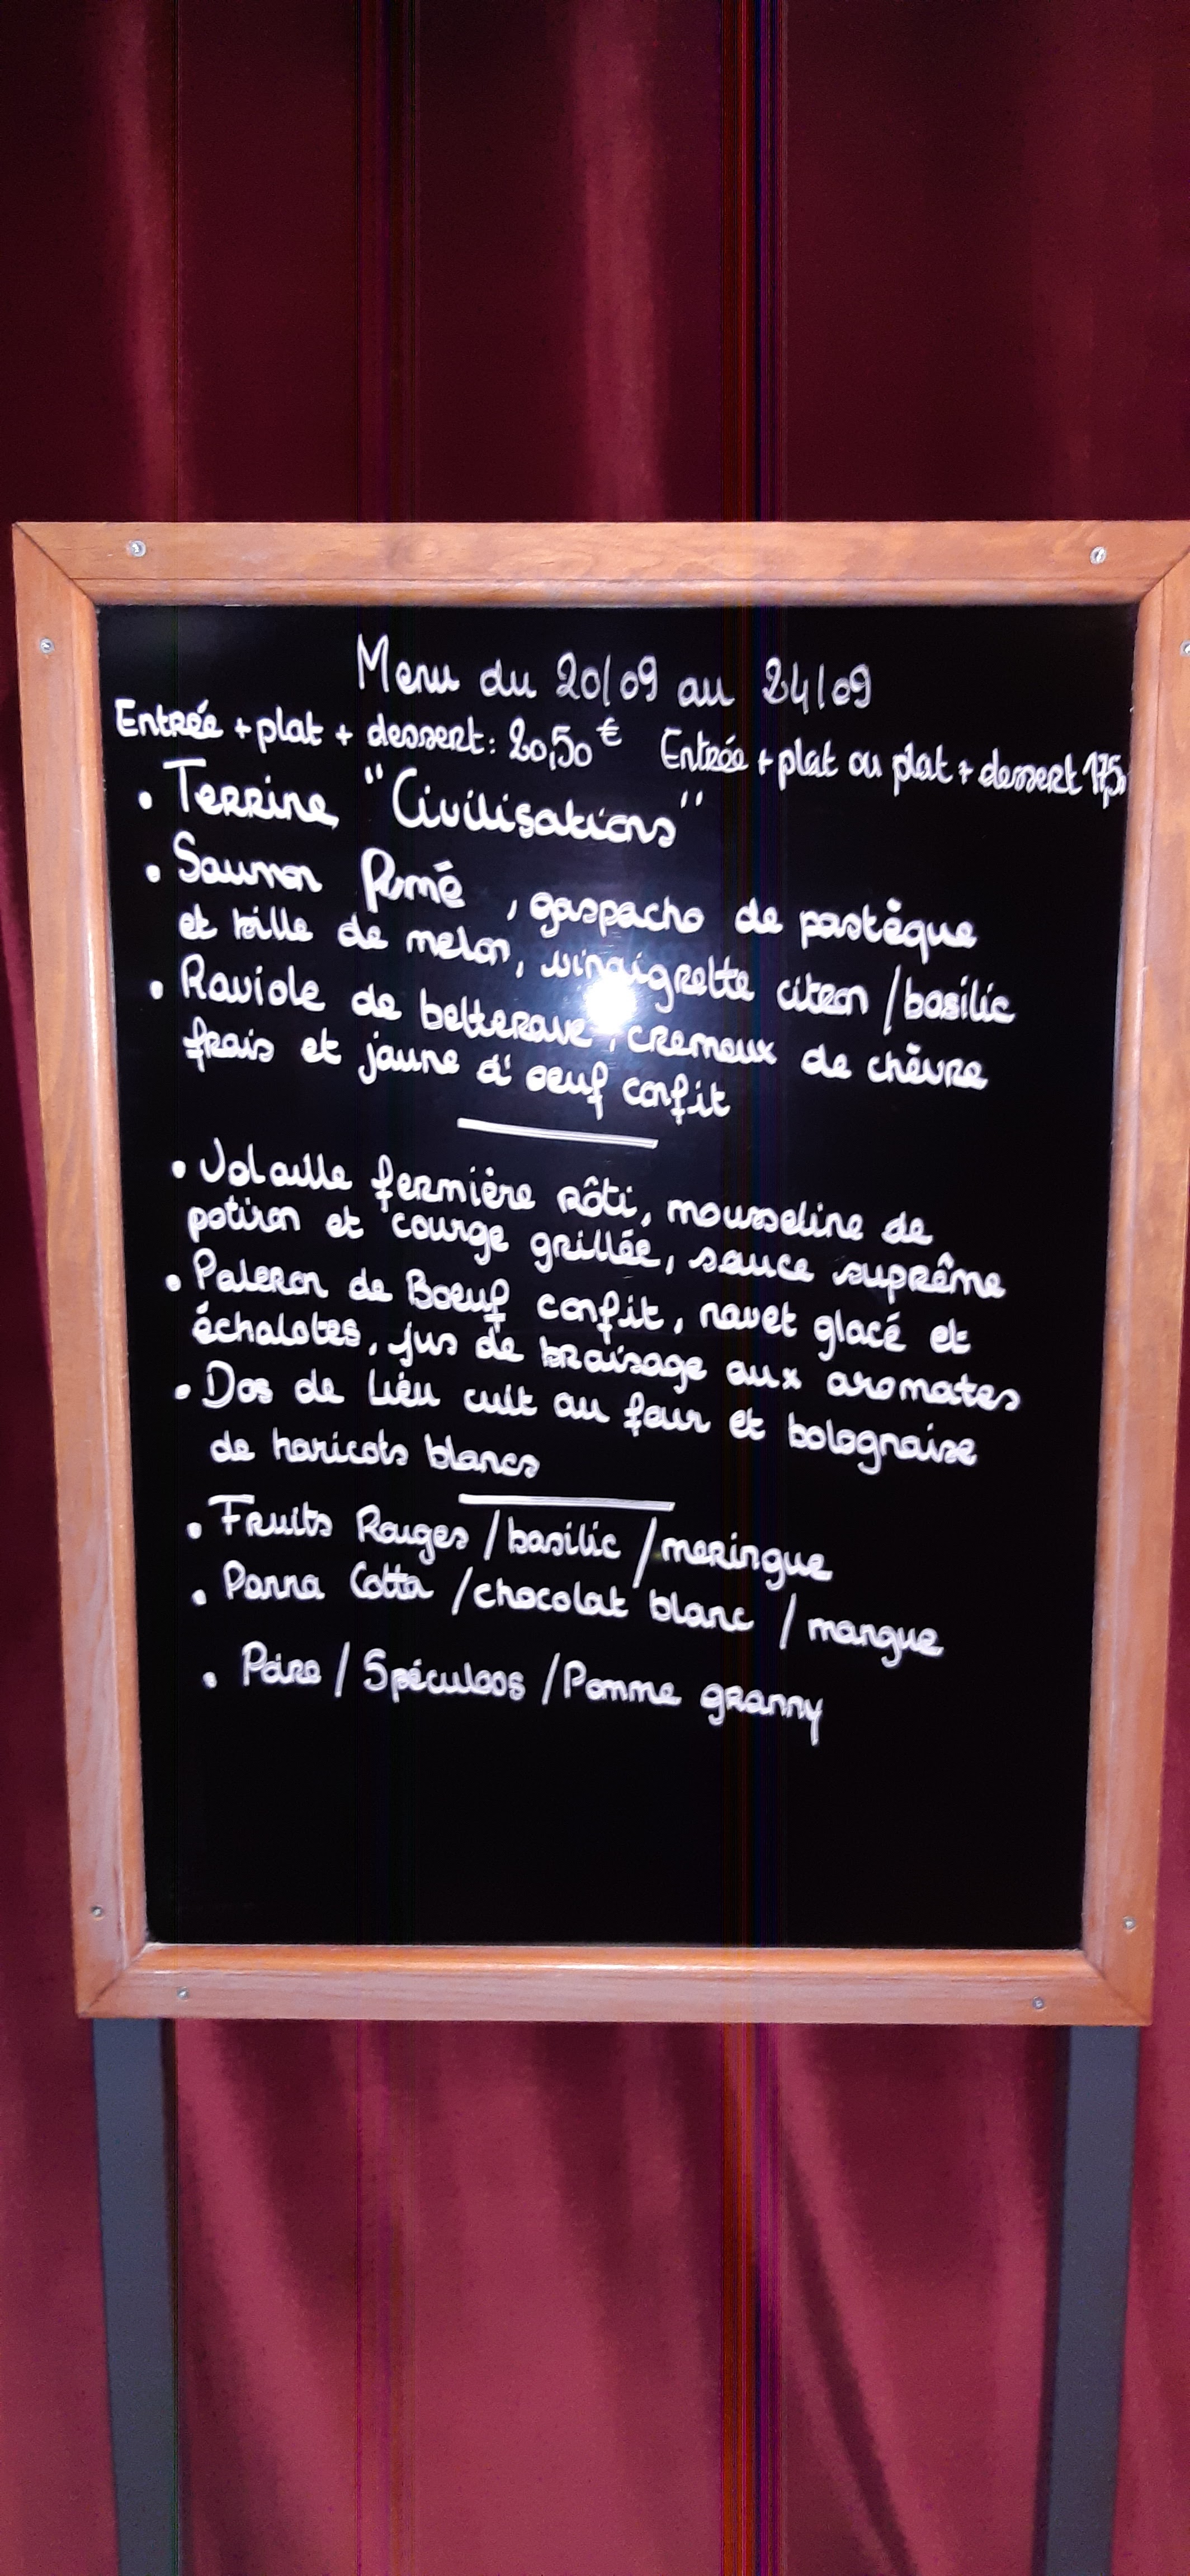 Menu du 20/09 au 24/09
Entrée + plat + dessert : 20,50 € Entrée + plat ou plat + dessert 17,5
• Terrine "Civilisations"
• Saumon Fumé, gaspacho de pastèque
et bille de melon, vinaigrette citron / basilic
• Raviole de betterave, cremeux de chèvre
frais et jaune d'oeuf confit
• Volaille fermière rôti, mousseline de
potiron et courge grillée, sauce suprême
• Paleron de Boeuf confit, navet glacé et
échalotes, jus de braisage aux aromates
• Dos de Lieu cuit au four et bolognaise
de haricots blancs
• Fruits Rouges / basilic / meringue
• Panna Cotta / chocolat blanc / mangue
• Poire / Spéculoos / Pomme granny